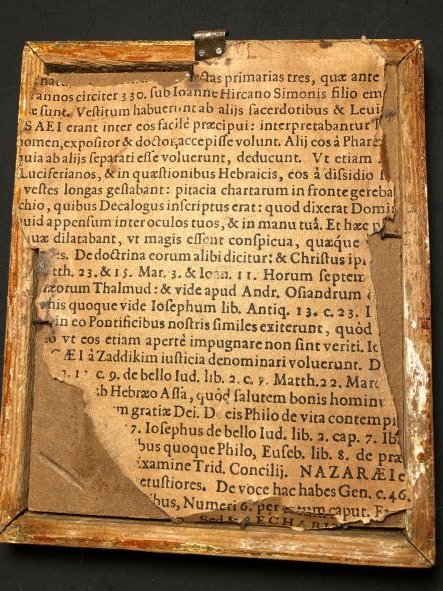 ctas primarias tres, quæ ante
annos circiter 330. sub Ioanne Hircano Simonis filio em
æ sunt. Vestitum habuerunt ab alijs sacerdotibus & Leui
SAEI erant inter eos facilè præcipui: interpretabantur
omen, expositor & doctor, accepisse volunt. Alij eos à Phares
quia ab alijs separati esse voluerunt, deducunt. Vt etiam
Luciferianos, & in quæstionibus Hebraicis, eos à dissidio
vestes longas gestabant: pitacia chartarum in fronte gereba
chio, quibus Decalogus inscriptus erat: quod dixerat Domi
uid appensum inter oculos tuos, & in manu tuâ. Et hæc p
uæ dilatabant, vt magis essent conspicua, quæque
s. De doctrina eorum alibi dicitur: & Christus ip
tth. 23. & 15. Mar. 3. & Ioan. 11. Horum septem
æorum Thalmud: & vide apud Andr. Osiandrum
nis quoque vide Iosephum lib. Antiq. 13. c. 23. I
in eo Pontificibus nostris similes exiterunt, quòd
o vt eos etiam apertè impugnare non sint veriti. Io
CÆI à Zaddikim iusticia denominari voluerunt. D
c. 9. de bello Iud. lib. 2. c. 7. Matth. 22. Marc
ib Hebræo Assa, quòd salutem bonis homin
m gratiæ Dei. De eis Philo de vita contemp
7. Iosephus de bello Iud. lib. 2. cap. 7. Ib
ibus quoque Philo, Euseb. lib. 8. de præ
examine Trid. Concilij. NAZARÆI e
etustiores. De voce hac habes Gen. c. 46.
ibus, Numeri 6. per totum caput. E
Sed & RECHABI